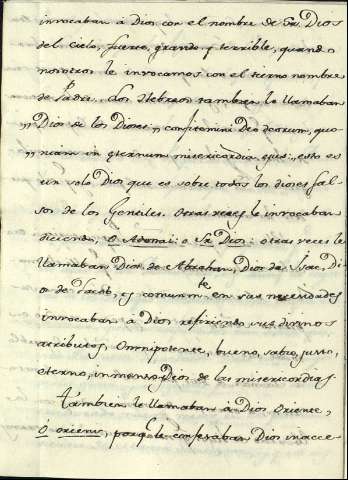 invocaban à Dios con el nombre de Sr. Dios
del cielo, fuerte, grande y terrible, quando
nosotros le invocamos con el tierno nombre
de Padre. Los Hebreos tambien le llamaban
„ Dios de los Dioses „ confitemini Deo deorum, quo-
„ niam in eternum misericordia ejus: „ esto es
un solo Dios que es sobre todos los dioses fal-
sos de los Gentiles. Otras veces le invocaban
diciendo, O Adonai: o Sr. Dios: otras veces le
llamaban Dios de Abrahan, Dios de Isac, Di-
os de Jacob, y comunmte. en sus necesidades
invocaban à Dios refiriendo sus divinos
atributos Omnipotente, bueno, sabio, justo,
eterno, inmenso y Dios de las misericordias
Tambien le llamaban à Dios Oriente,
O oriens, porq̃ le confesaban Dios inacce